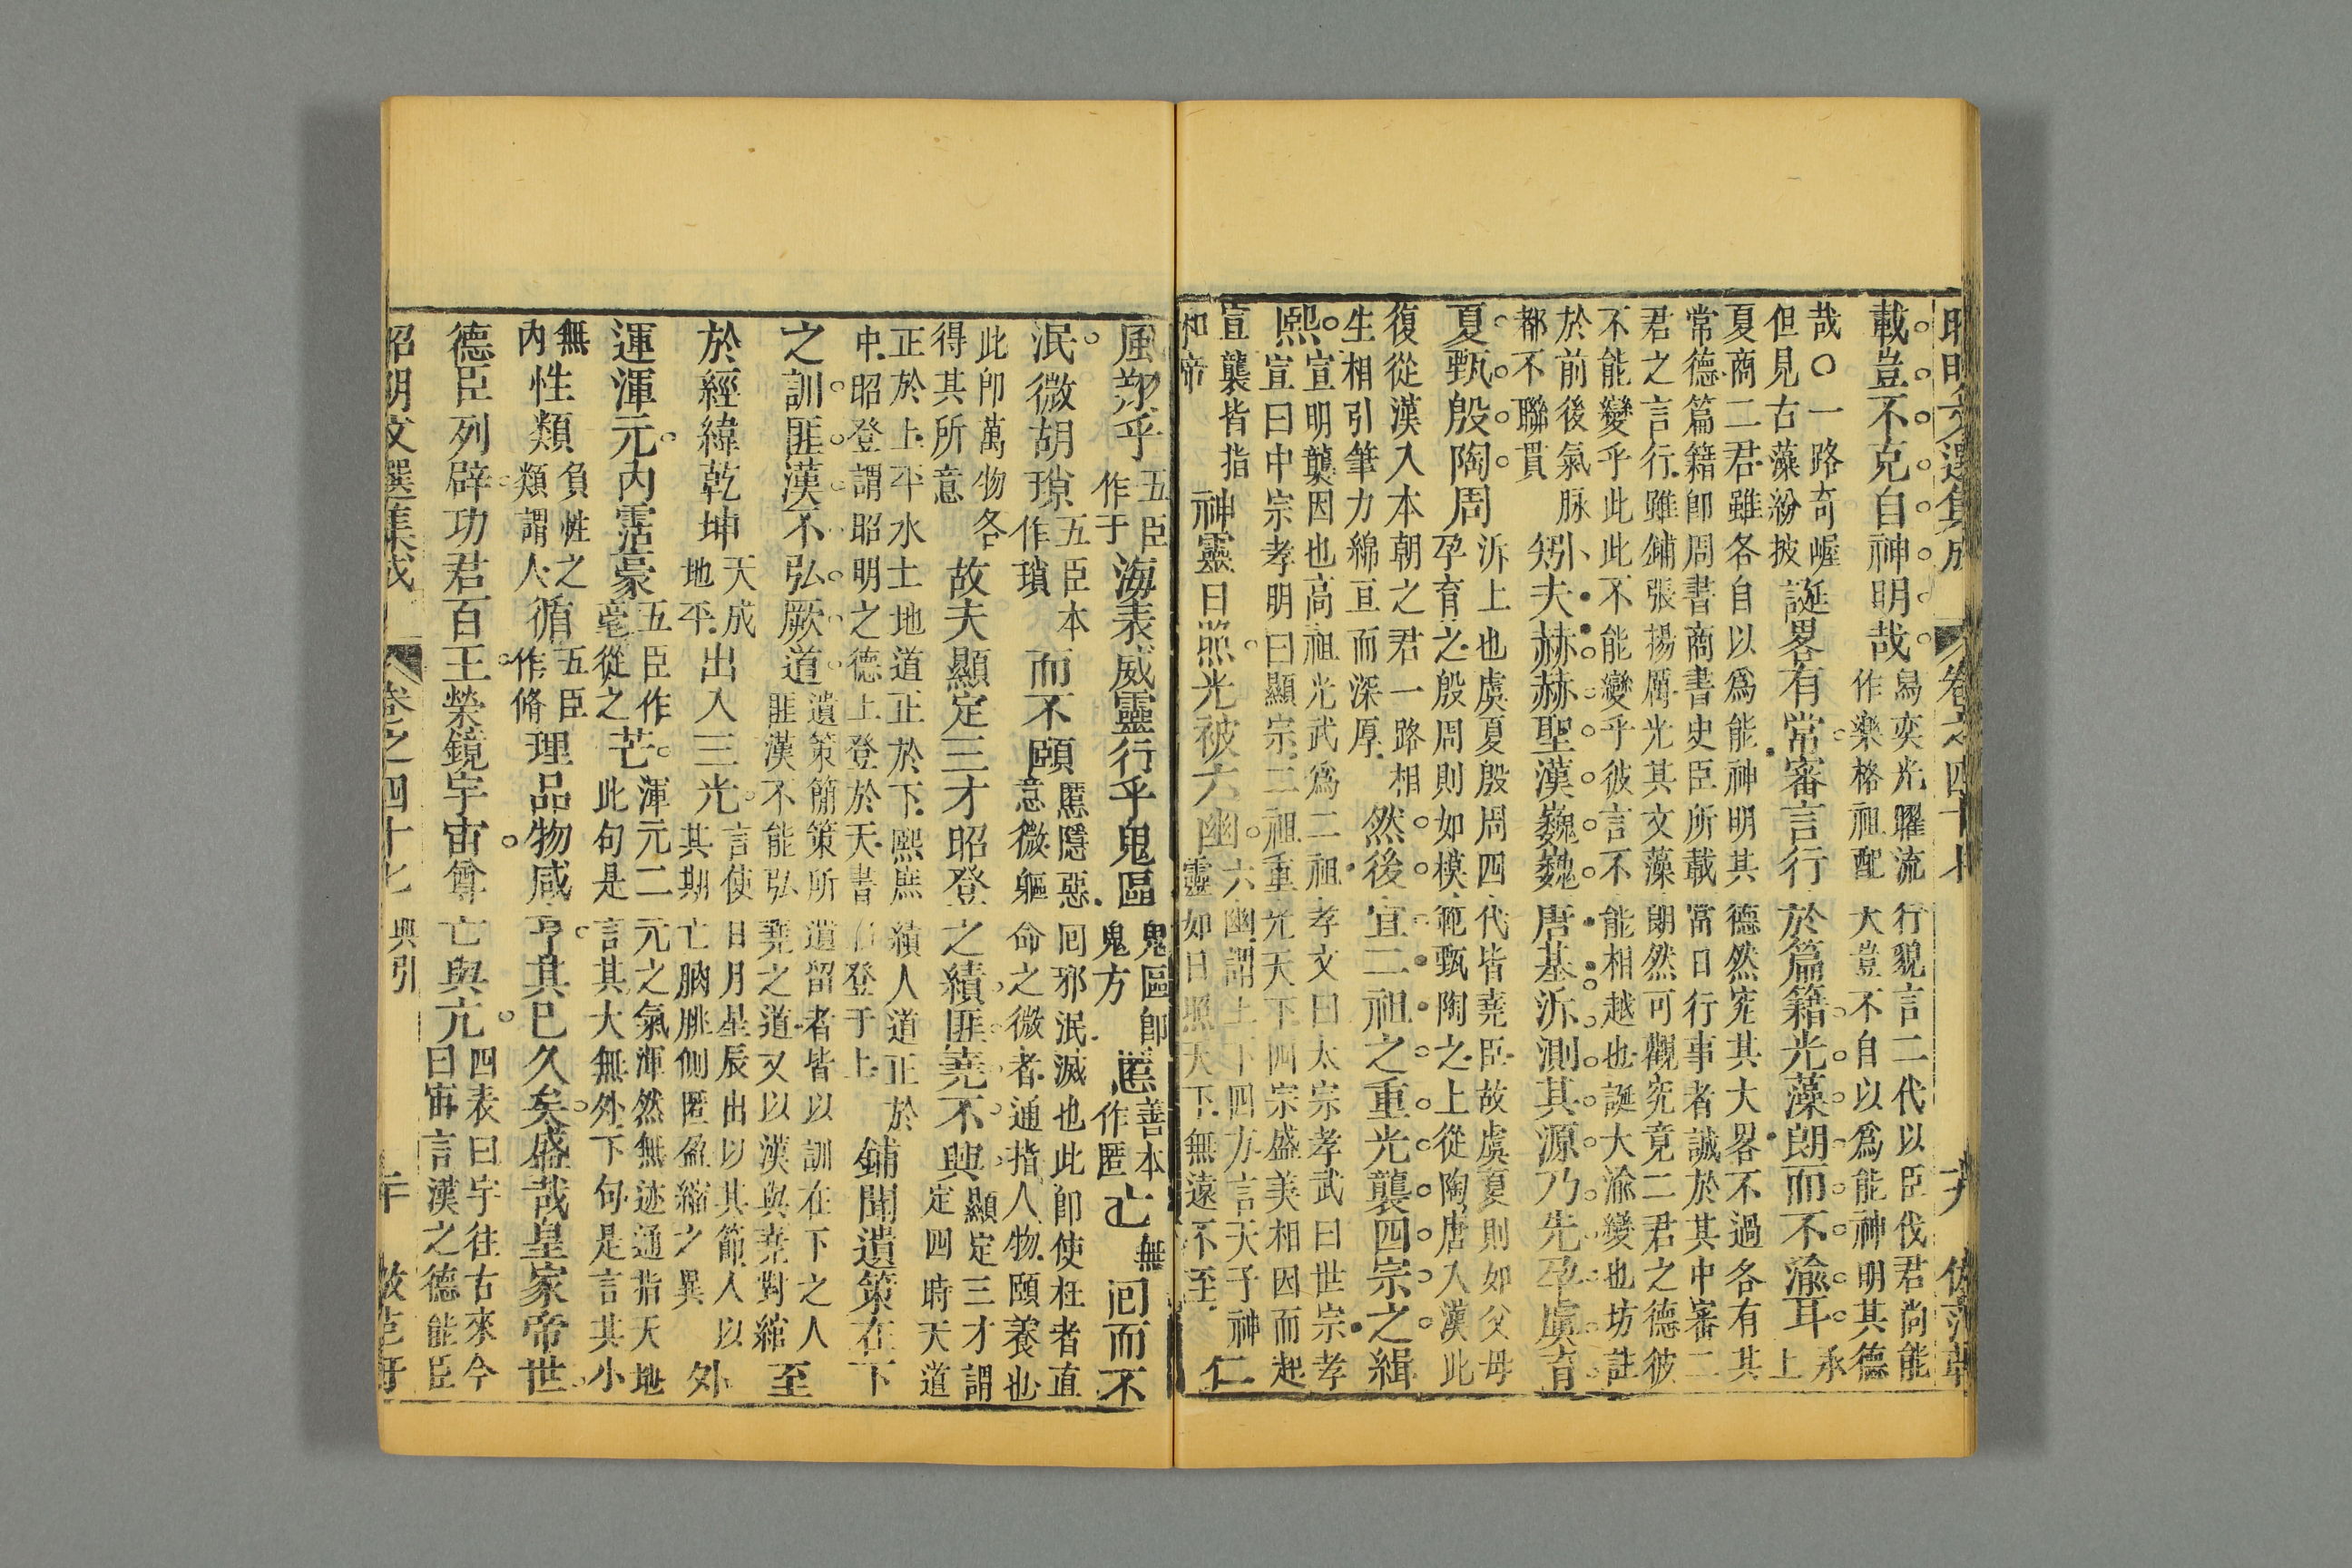 昭明文選集成 卷之四十七 十九 倣范軒
載豈不克自神明哉舃奕光曜流行貌言二代以臣伐君尚能作樂格祖配大豈不自以爲能神明其德
哉〇一路奇崛但見古藻紛披誕畧有常審言行於篇籍光藻朗而不渝耳承上
夏商二君雖各自以爲能神明其德然究其大畧不過各有其常德篇籍卽周書商書史臣所載當日行事者誠於其中審二
君之言行雖鋪張揚厲光其文藻朗然可觀究竟二君之德彼不能變乎此此不能變乎彼言不能相越也誕大渝變也坊註
於前後氣脉都不聯貫矧夫赫赫聖漢巍巍唐基泝測其源乃先孕虞育
夏甄殷陶周泝上也虞夏殷周四代皆堯臣故虞夏則如父母孕育之殷周則如模範甄陶之上從陶唐入漢此
復從漢入本朝之君一路相生相引筆力綿亘而深厚然後宣二祖之重光襲四宗之緝
熙宣明襲因也高祖光武爲二祖孝文曰太宗孝武曰世宗孝宣曰中宗孝明曰顯宗二祖重光天下四宗盛美相因而起
宣襲皆指和帝神靈日照光被六幽六幽謂上下四方言天子神靈如日照天下無遠不至仁
風翔乎五臣作于海表威靈行乎鬼區鬼區卽鬼方慝善本作匿亡無迥而不
泯微胡瑣五臣本作瑣而不頤慝隱惡回邪泯滅也此卽使枉者直意微軀命之微者通指人物頤養也
此卽萬物各得其所意故夫顯定三才昭登之績匪堯不興顯定三才謂定四時天道
正於上平水土地道正於下熙庶績人道正於中昭登謂昭明之德上登於天書登于上鋪聞遺策在下
之訓匪漢不弘厥道遺策簡策所遺留者皆以訓在下之人匪漢不能弘堯之道又以漢與堯對綰至
於經緯乾坤天成地平出入三光言使日月星辰出以其節人以其期亡朒朓側匿盈縮之異外
運渾元內霑豪五臣作毫從之芒渾元二元之氣渾然無迹通指天地此句是言其大無外下句是言其小
無內性類負性之類謂人循五臣作脩理品物咸亨其已久矣盛哉皇家帝世
德臣列辟功君百王榮鏡宇宙尊亡與亢四表曰宇往古來今曰宙言漢之德能臣
昭明文選集成 卷之四十七 典引 二十 倣范軒